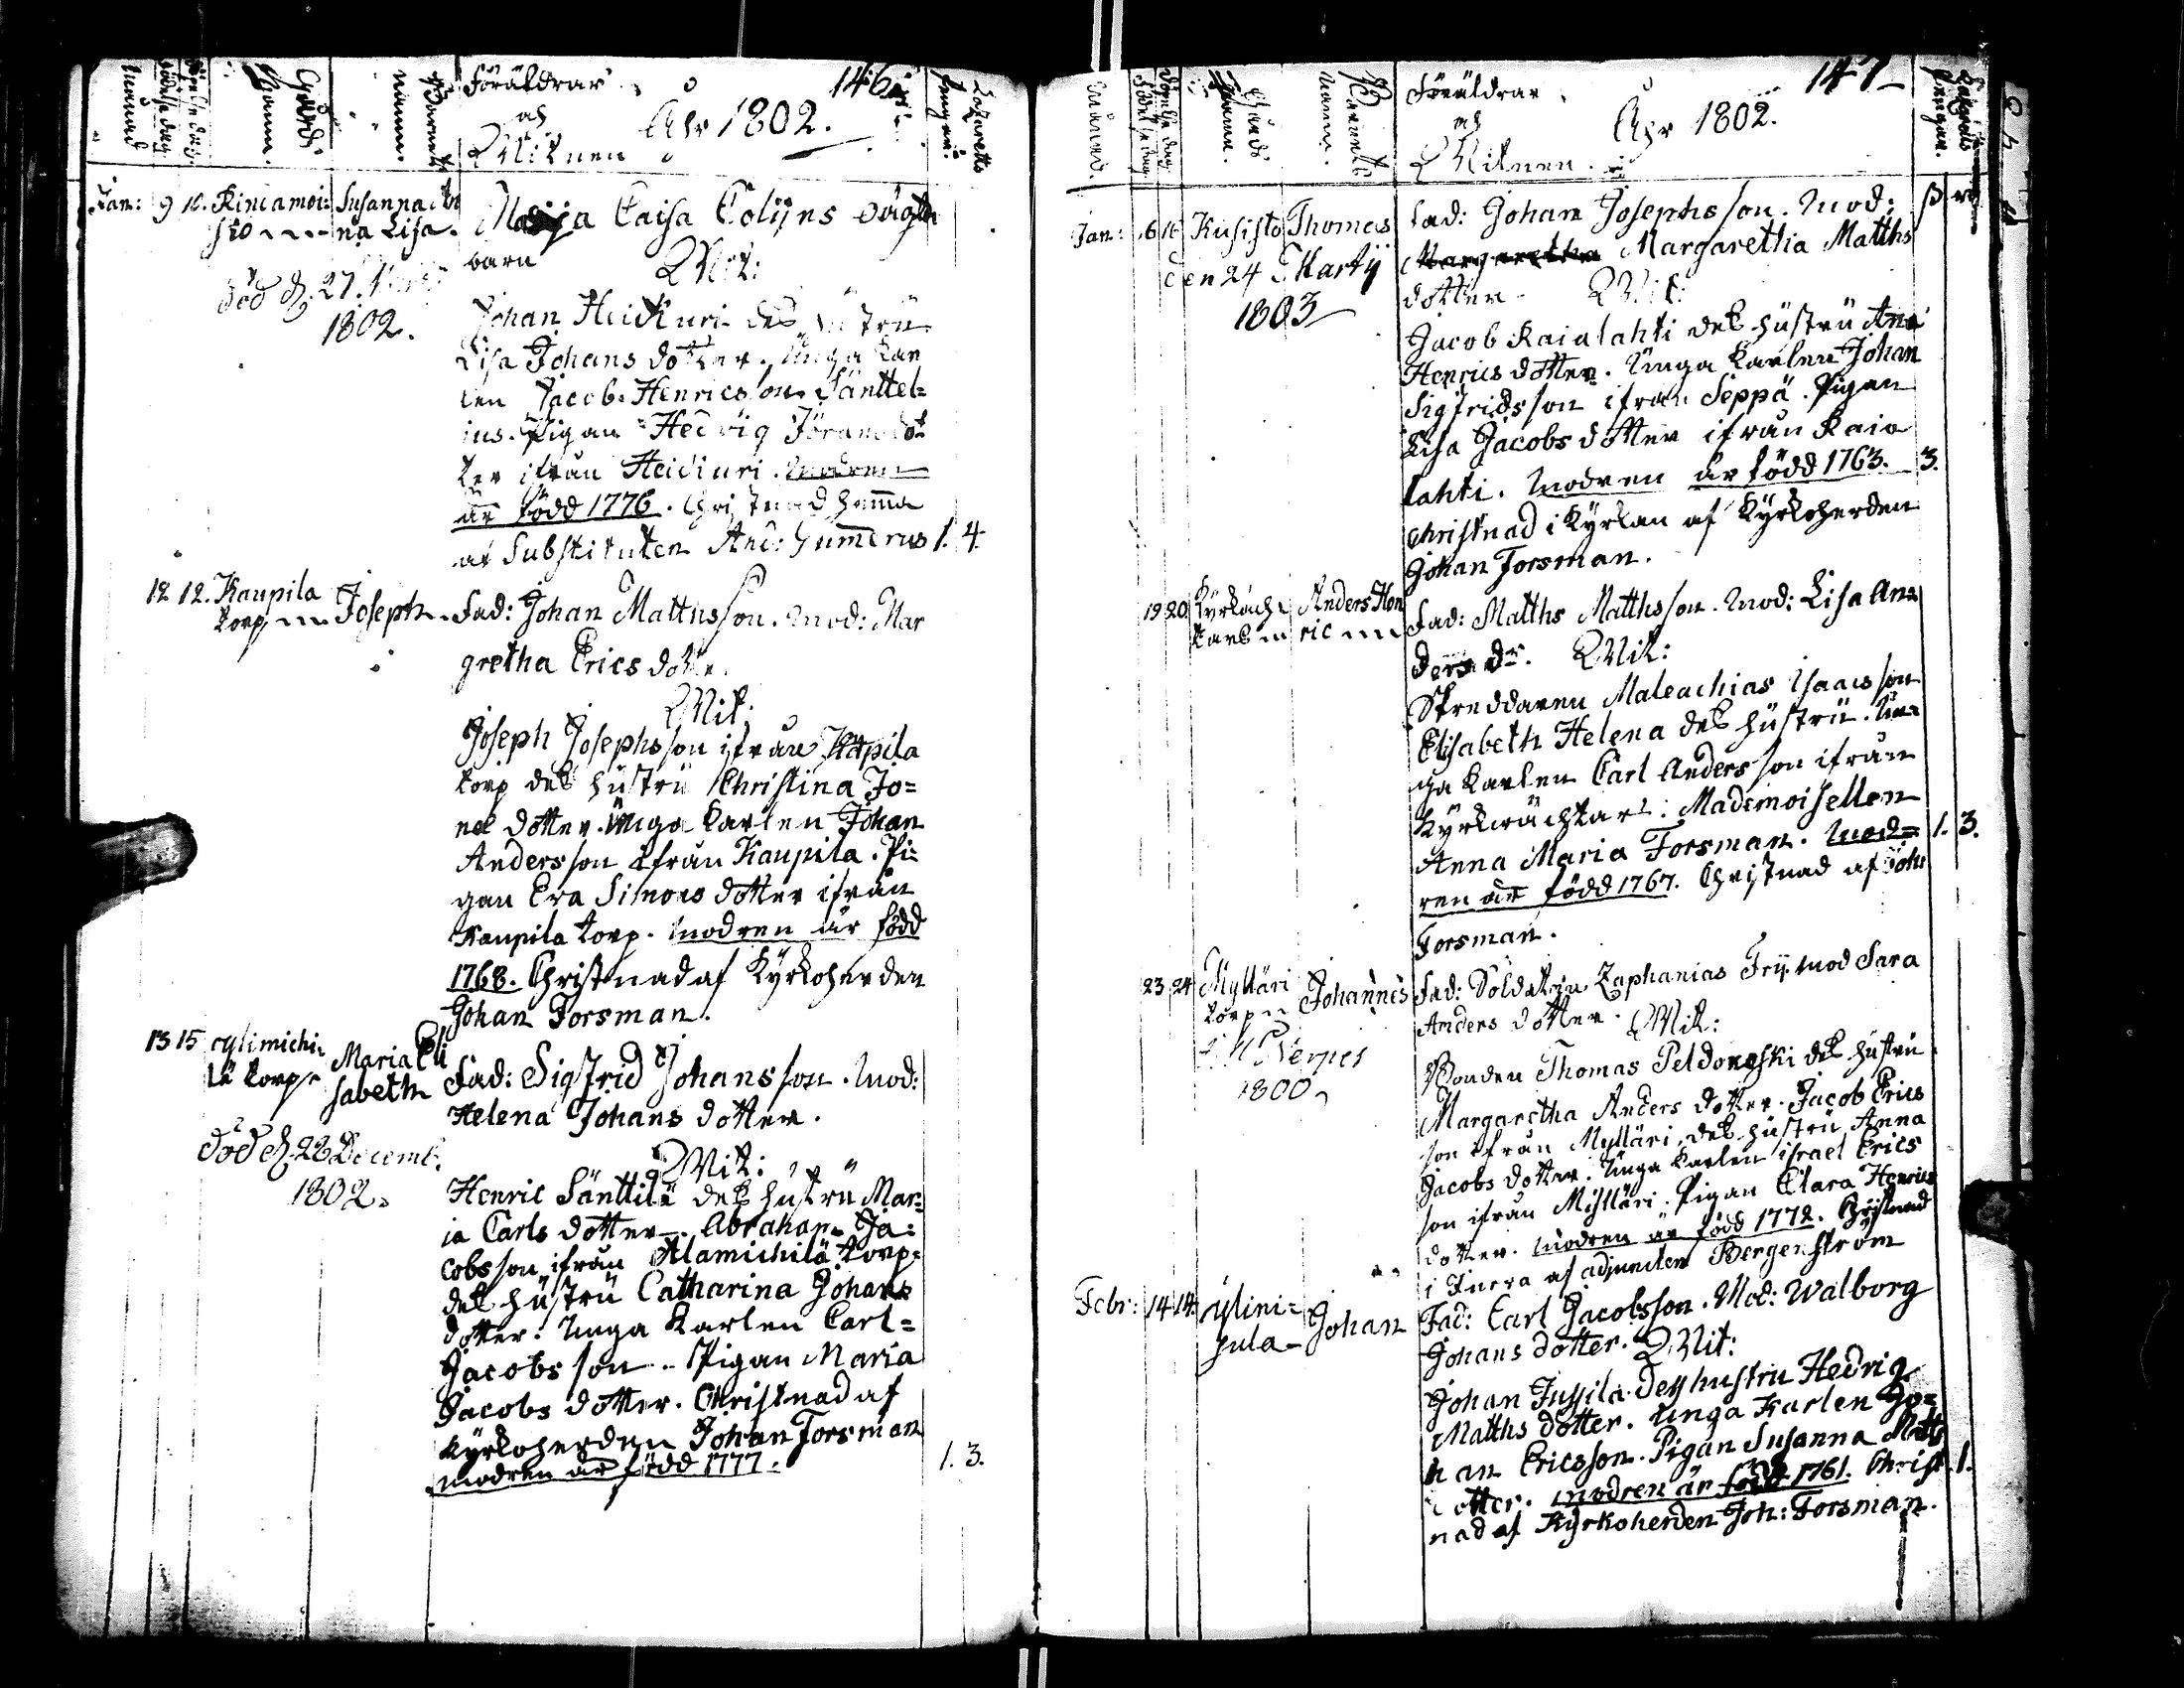 146
månad
födelse dag
Gårds
namn.
Barnets
namn.
Föräldrar
och
Witnen
Åhr 1802.
Lazaretts
pengar.
Jan: 9 10. Susanna
na Lisa.
Maija Caisa Colijns
barn
Wit:
död d. 27.
1802.
Johan Heickuri des hustru
Lisa Johans dotter. Unga kar
len Jacob Henricsson Sänttel=
ius. Pigan Hedvig Jöransdot
ter ifrån Heickuri. Modren
är född 1776. Christnad hemma
af Substituten And: Gumerus 1. 4.
12 12. Kaupila
torp Joseph Fad: Johan Matthsson. Mod: Mar
gretha Erics dotter.
Wit:
Joseph Josephsson ifrån Kapila
torp des hustru Christina Jo=
nes dotter. Unga karlen Johan
Andersson ifrån Kaupila. Pi=
gan Eva Simons dotter ifrån
Kaupila torp. Modren är född
1768. Christnad af Kyrkoherden
Johan Forsman.
13 15 Ylimichi=
lä torp Maria Eli
sabeth
Fad: Sigfrid Johansson. Mod:
Helena Johans dotter.
död d. 28 Decemb.
1802.
Wit:
Henric Sänttilä des hustru Mar=
ia Carls dotter. Abraham Ja=
cobsson ifrån Alamichilä torp
des hustru Catharina Johans
dotter. Unga Karlen Carl=
Jacobsson. Pigan Maria
Jacobs dotter. Christnad af
Kyrkoherden Johan Forsman
modren är född 1777. 1. 3.
147
Månad.
Födelse dag
Gårds
namn.
Barnets
namn.
Föräldrar
och
Witnen.
Åhr 1802.
Jan: 16 16 Kusisto Thomas Fad: Johan Josephsson. Mod:
Margaretha Margaretha Matths
dotter Wit:
den 24 Martij
1803
Jacob Kaialahti des hustru Ana
Henrics dotter. Unga karlen Johan
Sigfridsson ifrån Seppä. Pigan
Lisa Jacobs dotter ifrån Kaia
lahti. Modren är född 1763. 3.
Christnad i Kyrkan af Kyrkoherden
Johan Forsman.
19 20. Anders Hen
ric
Fad: Matths Matthsson. Mod: Lisa An=
ders dr. Wit:
Skreddaren Maleachias Isaacsson
Elisabeth Helena des hustru. Un=
ga karlen Carl Andersson ifrån
Kyrkwächtars. Mademoisellen
Anna Maria Forsman. Mod= 1. 3.
ren är född 1767. Christnad af Joh:
Forsman.
23 24 Mylläri
torp Johannes Fad: Soldaten Zaphanias Frij. Mod Sara
Anders dotter. Wit:
1800
Bonden Thomas Peldonoski des hustru
Margaretha Anders dotter. Jacob Erics
son ifrån Mylläri, des hustru Anna
Jacobs dotter. Unga karlen Israel Erics
son ifrån Mylläri. Pigan Clara Henrics
dotter. Modren är född 1772. Christnad
i Tuera af adjuncten Bergenström
Febr: 14 14 Ylini=
jula Johan Fad: Carl Jacobsson. Mod: Walborg
Johans dotter. Wit:
Johan Jussila. Dess hustru Hedvig
Matths dotter. Unga Karlen Jo=
han Ericsson. Pigan Susanna Matts
dotter. modren är född 1761. Christ 1.
nad af Kyrkoherden Joh: Forsman.